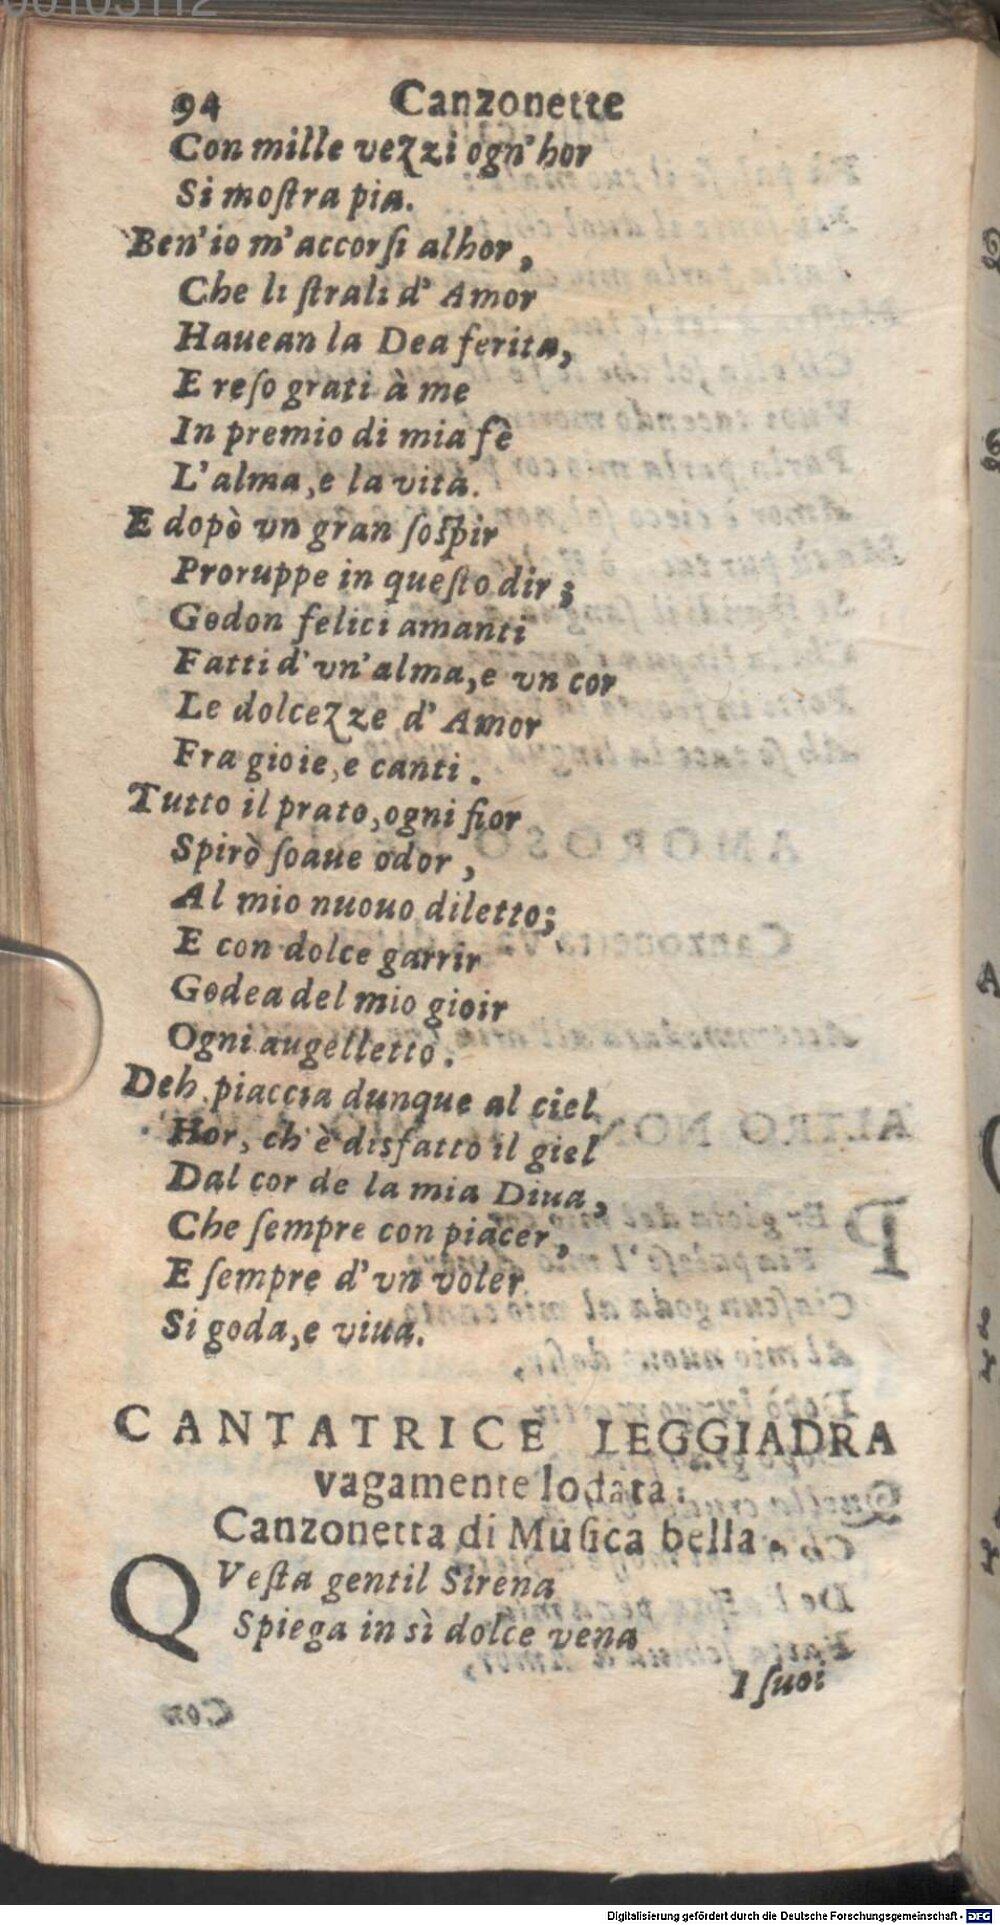 94 Canzonette
Con mille vezzi ogn'hor
Si moſtra pia.
Ben'io m'accorſi alhor,
Che li ſtrali d' Amor
Hauean la Dea ferita,
E reſo grati à me
In premio di mia fè
L'alma, e la vita.
E dopò vn gran ſoſpir
Proruppe in queſto dir;
Godon felici amanti
Fatti d'vn'alma, e vn cor
Le dolcezze d' Amor
Fra gioie, e canti.
Tutto il prato, ogni fior
Spirò ſoaue odor,
Al mio nuouo diletto;
E con dolce garrir
Godea del mio gioir
Ogni augelletto.
Deh piaccia dunque al ciel
Hor, ch'è disfatto il giel
Dal cor de la mia Diua,
Che ſempre con piacer,
E ſempre d'vn voler
Si goda, e viua.
CANTATRICE LEGGIADRA
vagamente lodata.
Canzonetta di Muſica bella.
QVeſta gentil Sirena
Spiega in sì dolce vena
I ſuoi
Digitalisierung gefördert durch die Deutsche Forschungsgemeinschaft - DFG